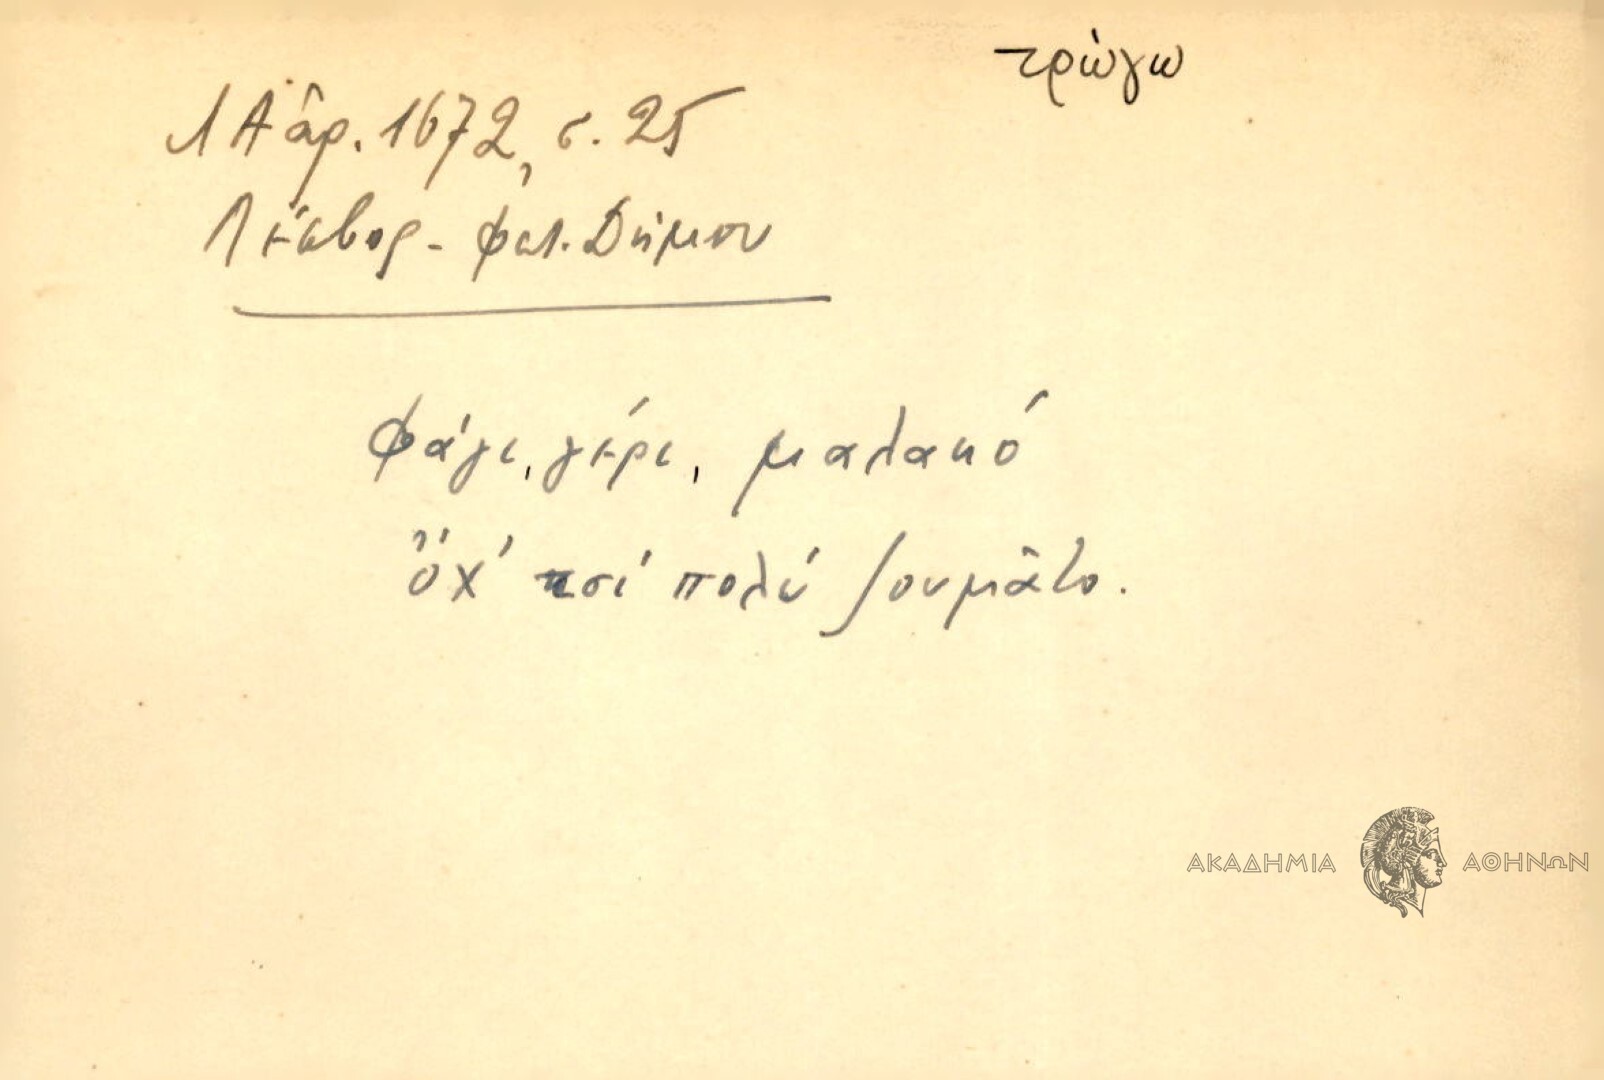 τρώγω
ΛΑ ἀρ. 1672, σ. 25
Λέσβος - Φιλ. Δήμου
Φάγι, γέρι, μαλακό
Ὄχ' τσί πολύ ζουμᾶτο.
ΑΚΑΔΗΜΙΑ ΑΘΗΝΩΝ